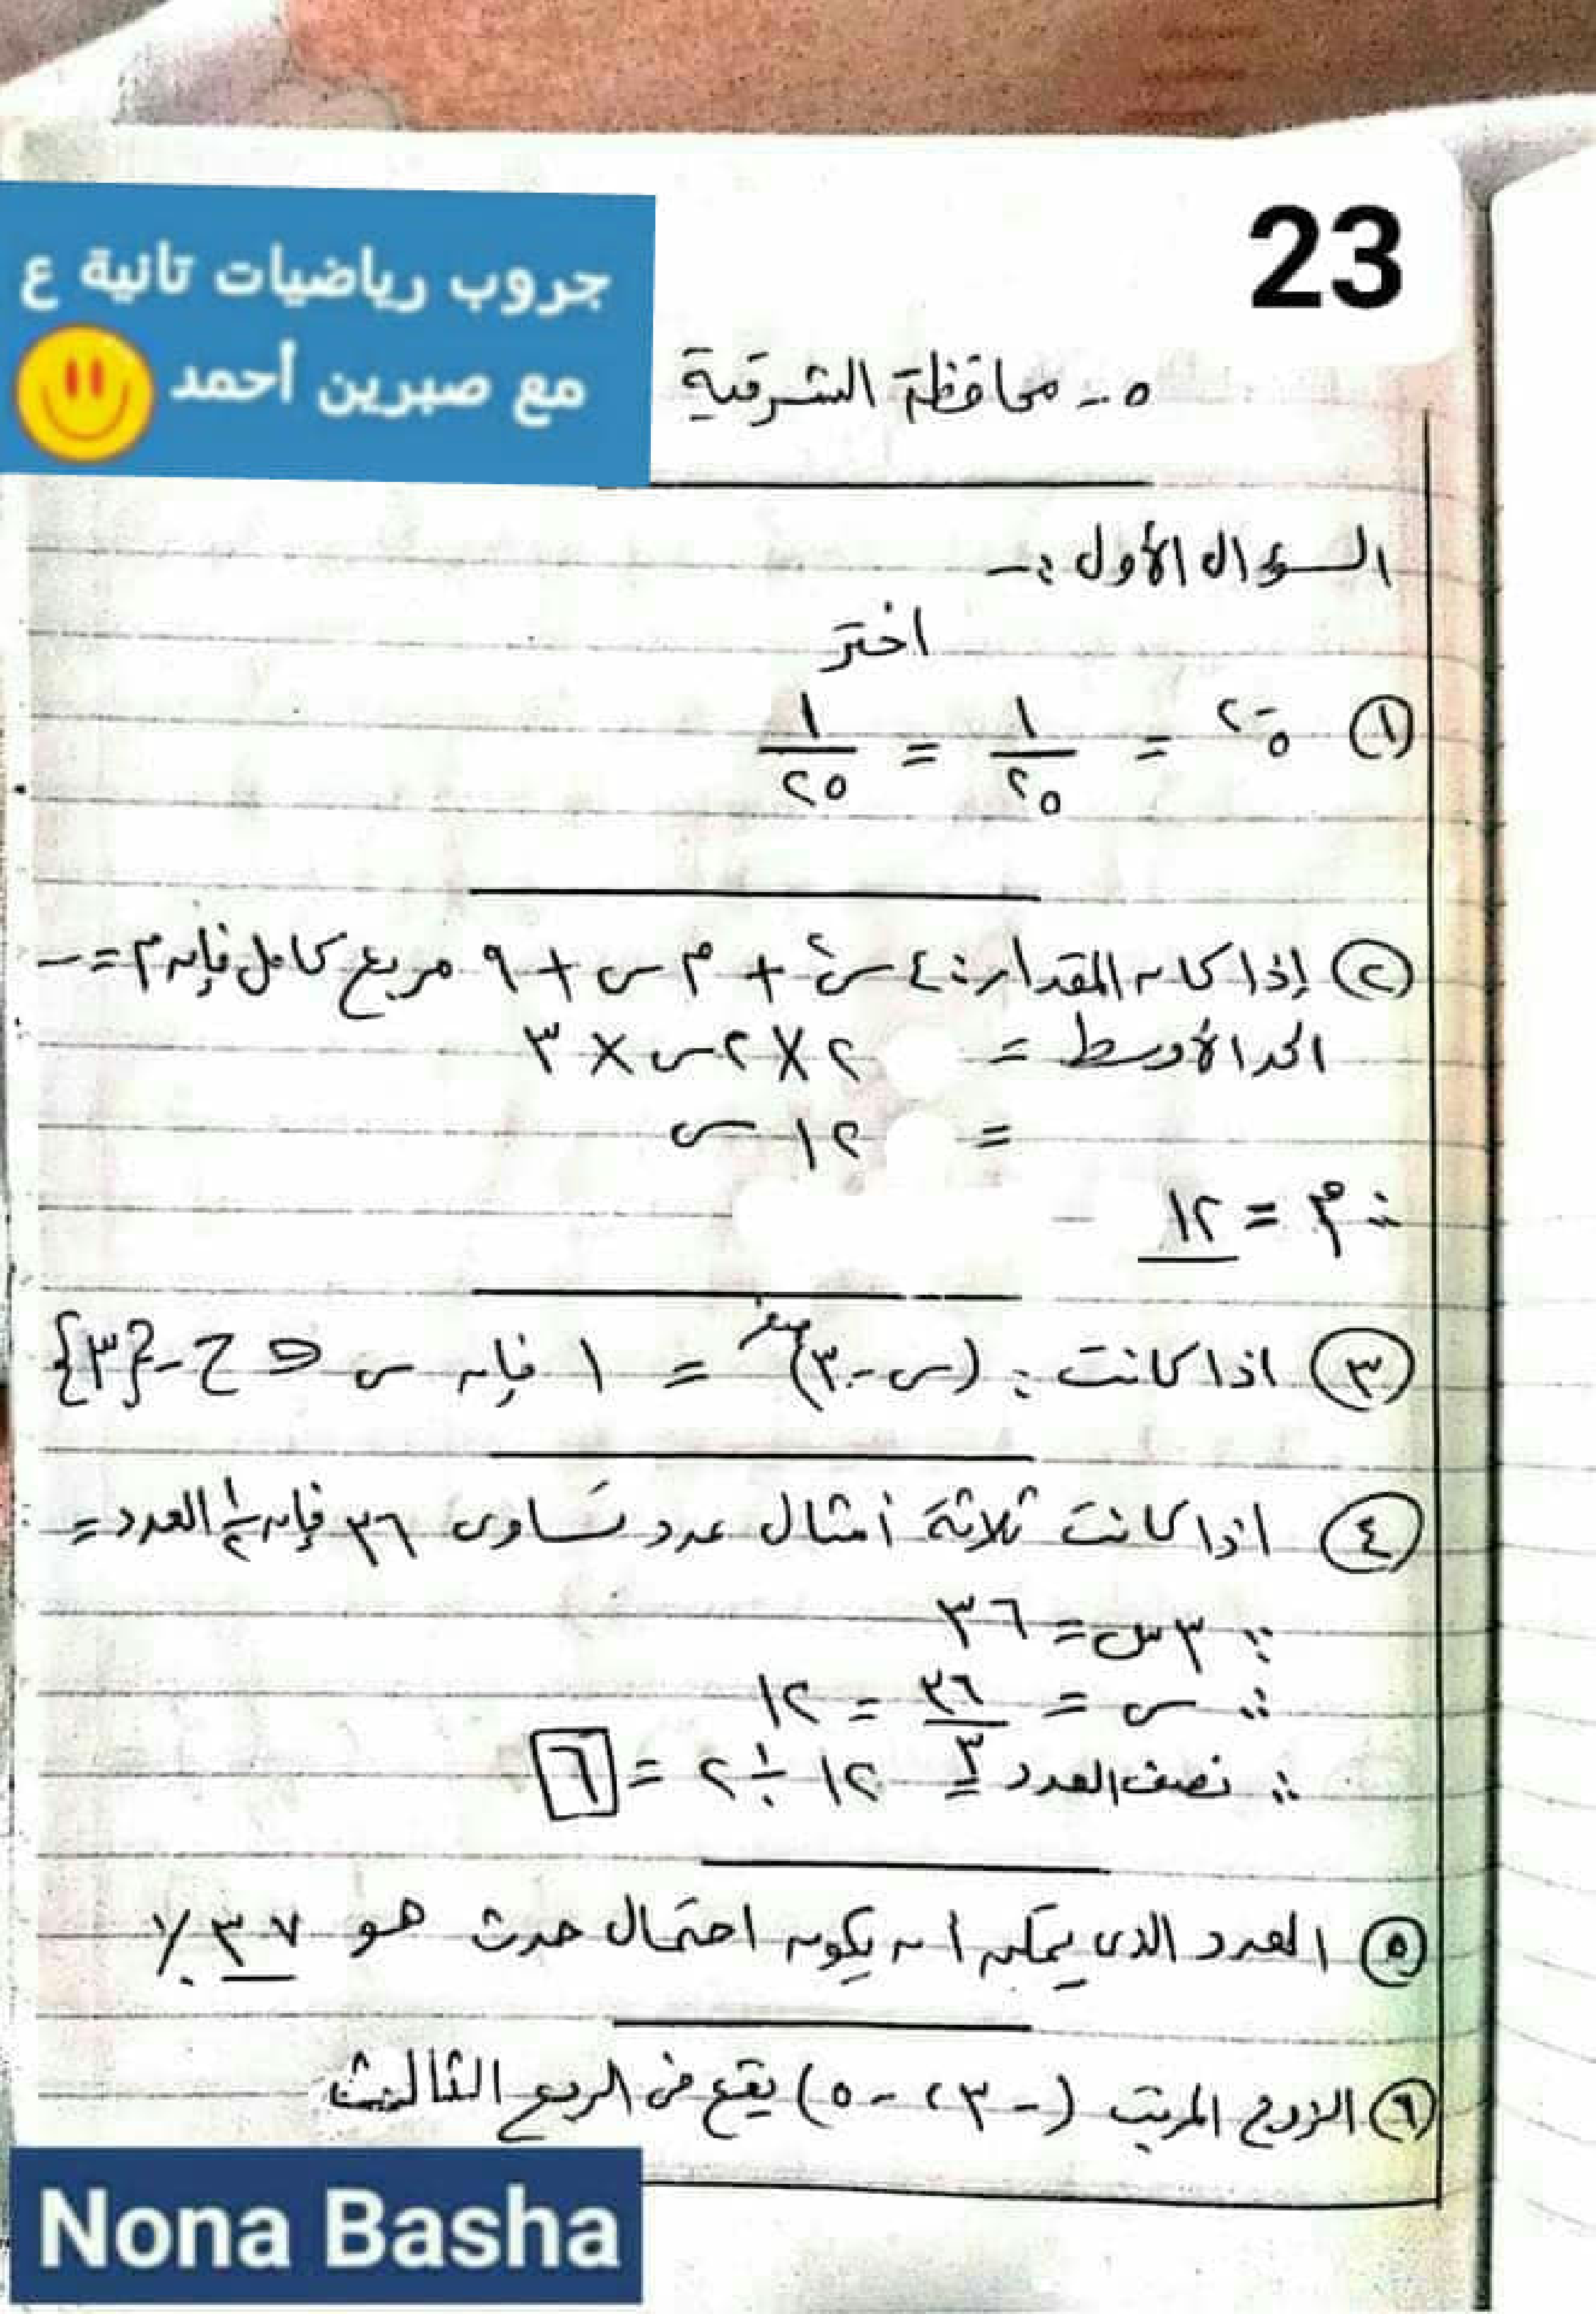 23
جروب رياضيات تانية ع
مع صبرين أحمد
٥ - محافظة الشرقية
السؤال الأول :-
اختر
١ ٥⁻² = ١/٥² = ١/٢٥
٢ إذا كان المقدار : ٤س² + م س + ٩ مربع كامل فإن م = -
الحد الأوسط = ٢ × ٢س × ٣
= ١٢ س
∴ م = ١٢
٣ اذا كانت : (س - ٣)صفر = ١ فإن س ∈ ح - {٣}
٤ اذا كانت ثلاثة أمثال عدد تساوى ٣٦ فإن ١/٢ العدد =
∵ ٣س = ٣٦
∴ س = ٣٦/٣ = ١٢
∴ نصف العدد = ١٢ ÷ ٢ = ٦
٥ العدد الذى يمكن أن يكون احتمال حدث هو ٣٧ ٪
٦ الزوج المرتب (-٣، -٥) يقع فى الربع الثالث
Nona Basha